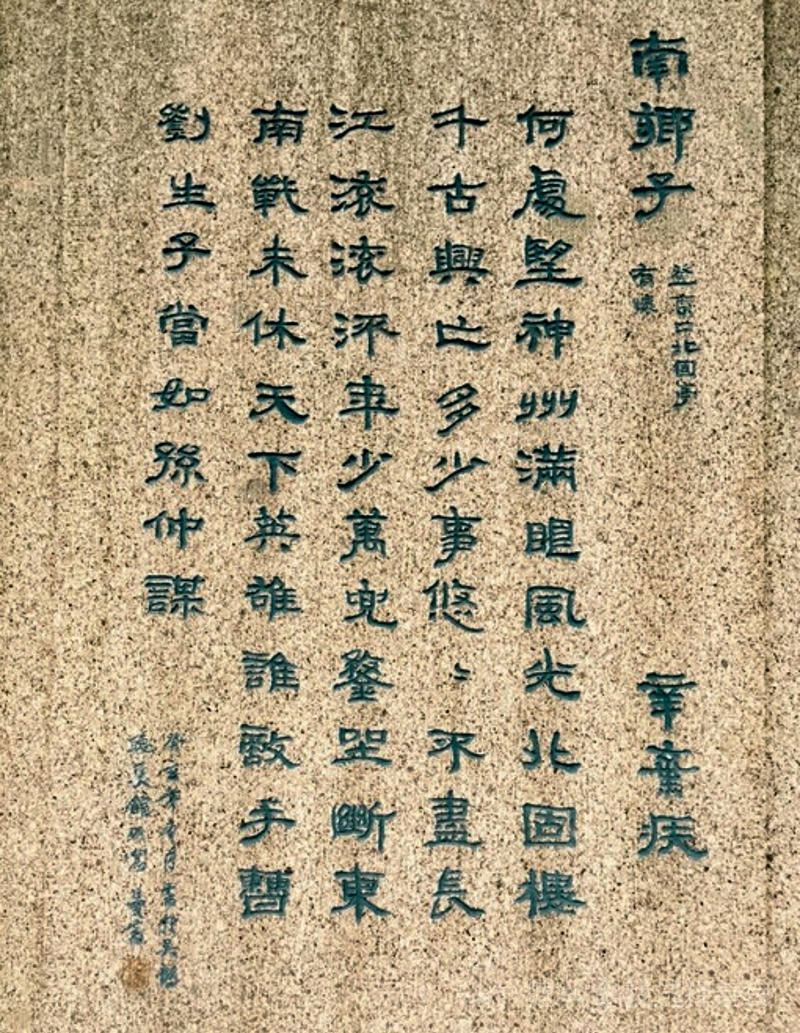 南鄉子
登京口北固亭
有懷
辛棄疾
何處望神州滿眼風光北固樓
千古興亡多少事悠〻不盡長
江滾滾流年少萬兜鍪坐斷東
南戰未休天下英雄誰敵手曹
劉生子當如孫仲謀
癸亥年